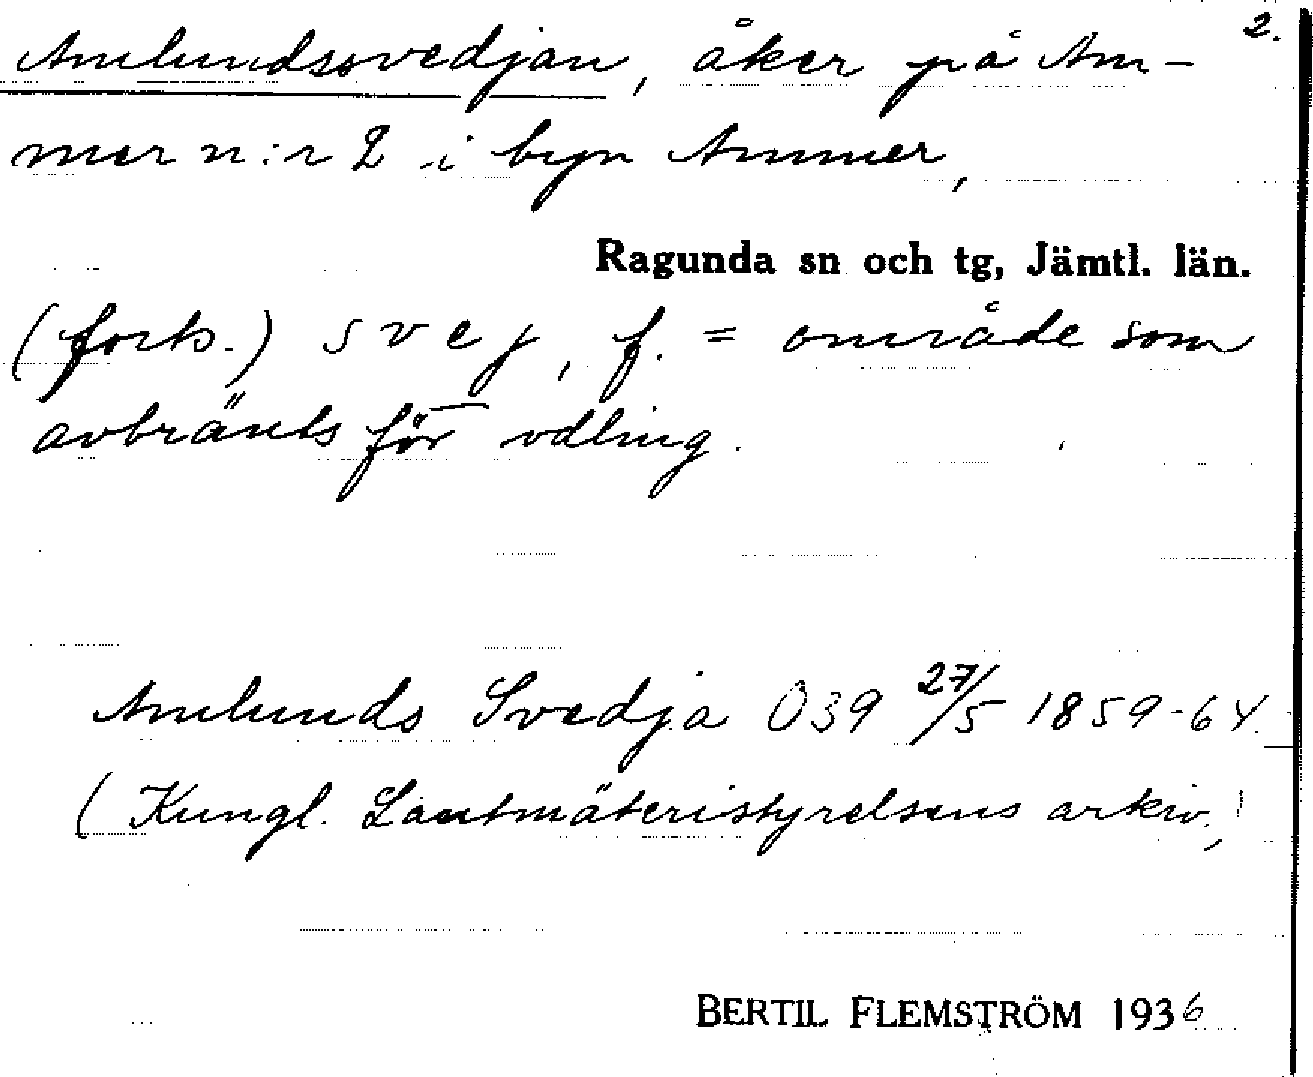 2.
Amlundssvedjan, åker på Am-
mer n:r 2 i byn Ammer,
Ragunda sn och tg, Jämtl. län.
(forts.) svej, f. = område som
avbränts för odling.
Amlunds Svedja O39 27/5 1859-64.
(Kungl. Lantmäteristyrelsens arkiv,
BERTIL FLEMSTRÖM 1936